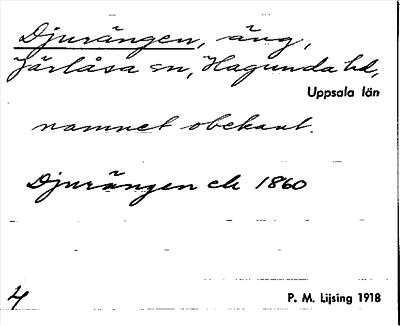 Djurängen, äng,
Järlåsa sn, Hagunda hd,
Uppsala län
namnet obekant.
Djurängen ek 1860
4
P. M. Lijsing 1918